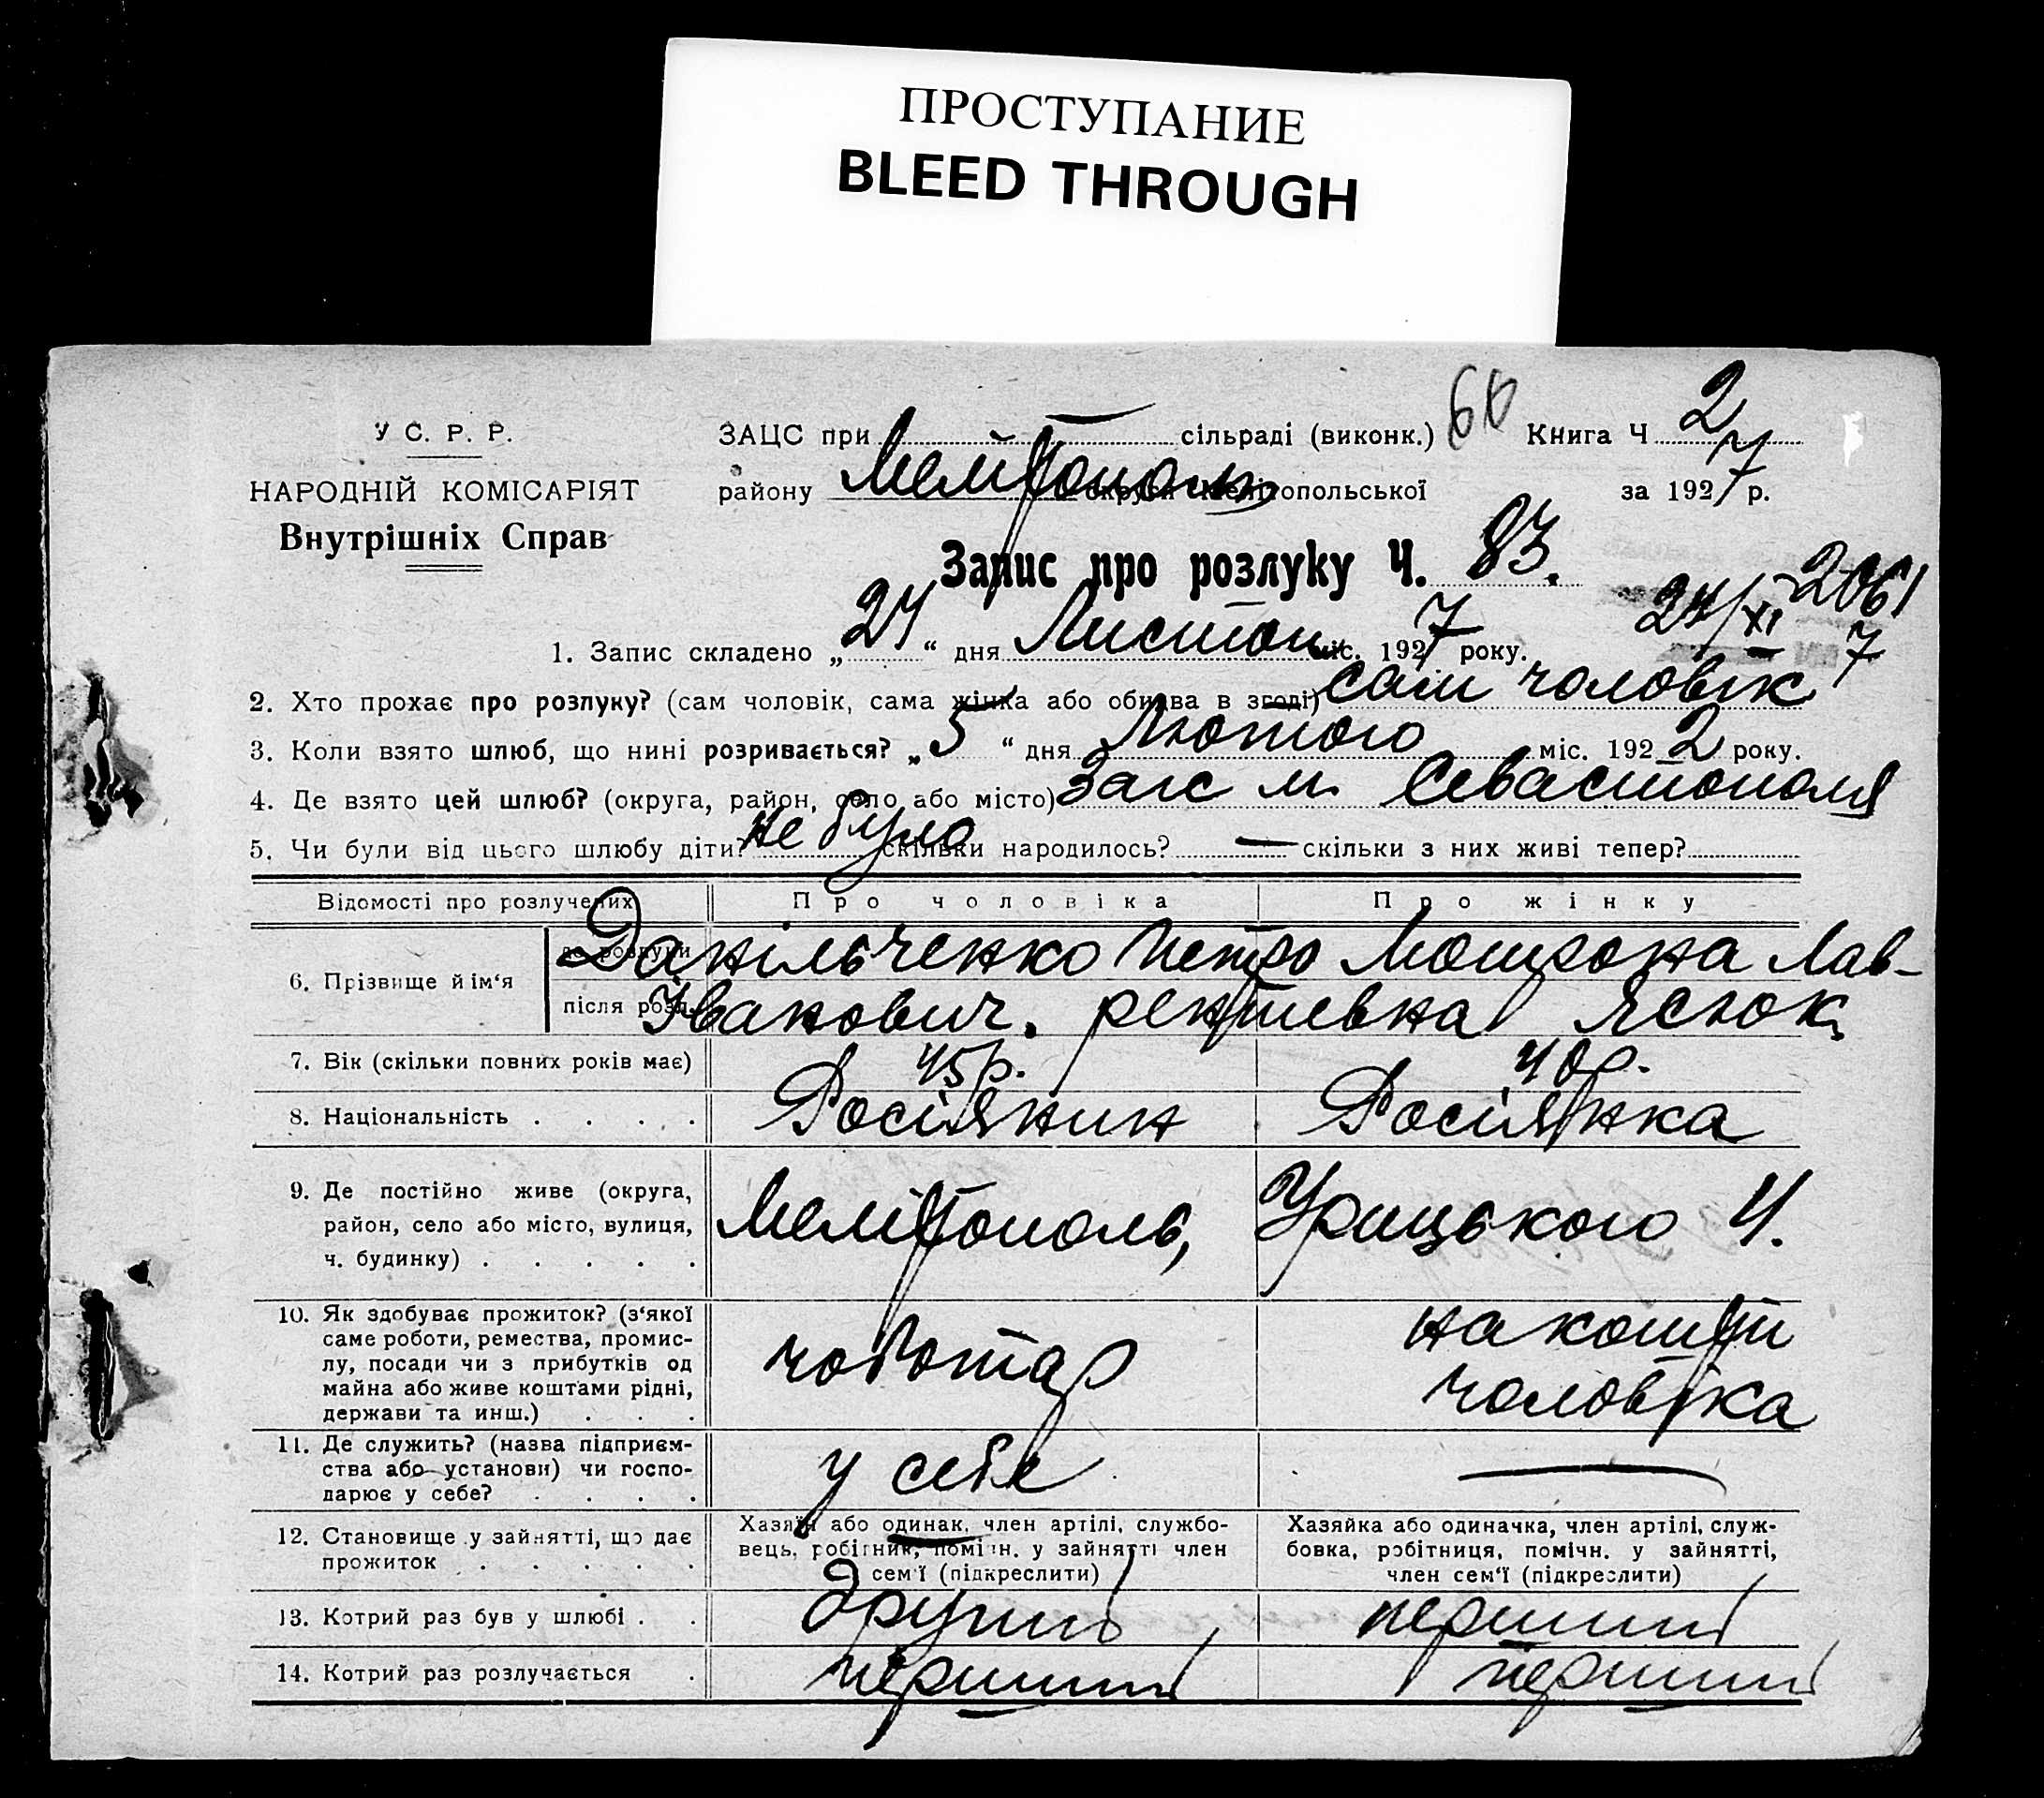 ПРОСТУПАНИЕ
BLEED THROUGH
У С. Р. Р.
НАРОДНІЙ КОМІСАРІЯТ
Внутрішніх Справ
ЗАЦС при — сільраді (виконк.) 60 Книга Ч 2
району Мелітополь округи Мелітопольської за 1927 р.
Запис про розлуку Ч. 83.
24/XI 7 2061
1. Запис складено „24“ дня Листоп міс. 1927 року.
2. Хто прохає про розлуку? (сам чоловік, сама жінка або обидва в згоді) сам чоловік
3. Коли взято шлюб, що нині розривається? „5“ дня Лютого міс. 1922 року.
4. Де взято цей шлюб? (округа, район, село або місто) Загс м. Севастополя
5. Чи були від цього шлюбу діти? не було скільки народилось? — скільки з них живі тепер?
Відомості про розлучених
Про чоловіка
Про жінку
6. Прізвище й ім‘я
до розлуки
після розл.
Данільченко Петро
Іванович.
Мотрона Лав-
рентіевна Ясюк
7. Вік (скільки повних років має) 45 р. 40 р.
8. Національність . . . . Росіянин Росіянка
9. Де постійно живе (округа,
район, село або місто, вулиця,
ч. будинку) . . . . .
Мелітополь, Урицького 4.
10. Як здобуває прожиток? (з‘якої
саме роботи, ремества, промис-
лу, посади чи з прибутків од
майна або живе коштами рідні,
держави та инш.) . . .
чоботар
на кошти
чоловіка
11. Де служить? (назва підприєм-
ства або установи) чи госпо-
дарює у себе? . . . .
у себе
—
12. Становище у зайнятті, що дає
прожиток . . . . .
Хазяїн або одинак, член артілі, службо-
вець, робітник, помічн. у зайнятті член
сем‘ї (підкреслити)
Хазяйка або одиначка, член артілі, служ-
бовка, робітниця, помічн. у зайнятті,
член сем‘ї (підкреслити)
13. Котрий раз був у шлюбі . . другий перший
14. Котрий раз розлучається . перший перший